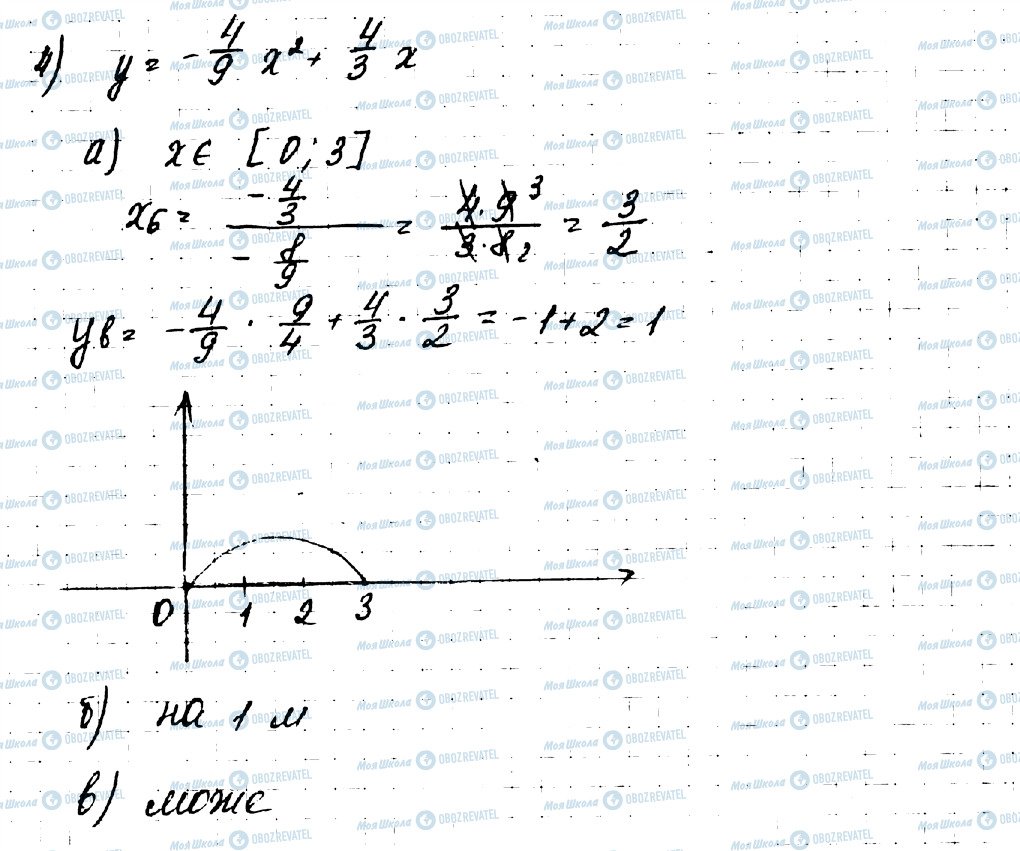 4) y = -4/9 x² + 4/3 x
а) x ∈ [0; 3]
xб = (-4/3)/(-8/9) = (4·9 3)/(3·8 2) = 3/2
yв = -4/9 · 9/4 + 4/3 · 3/2 = -1+2=1
0 1 2 3
б) на 1 м
в) може
Моя Школа OBOZREVATEL